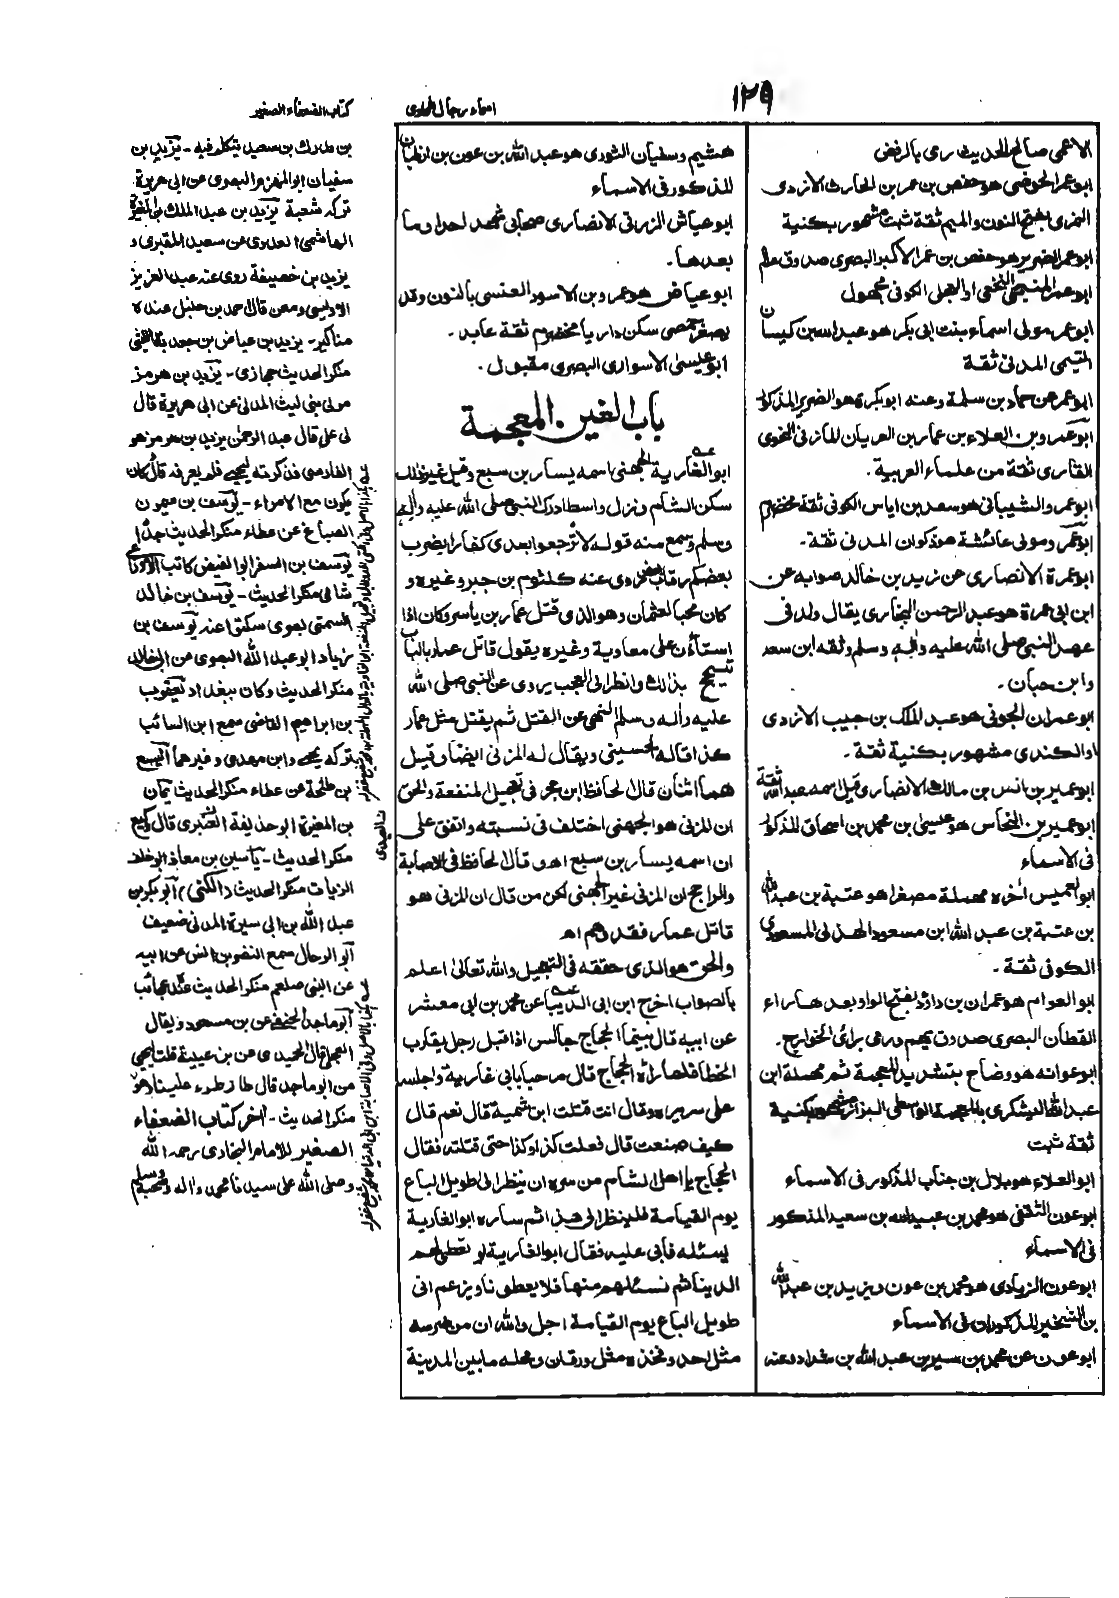 ١٢٩
اسماء رجال الطحاوى
كتاب الضعفاء الصغير
الاعمى صالح الحديث رمى بالرفض
ابو عمر الحوضى هو حفص بن عمر بن الحارث الازدى
النمرى بفتح النون والميم ثقة ثبت مشهور بكنية
ابو عمر الضرير هو حفص بن عمر الاكبر البصرى صدوق عالم
ابو عمر النخعى او العجلى الكوفى مجهول
ابو عمر مولى اسماء بنت ابى بكر هو عبد الله بن كيسان
التيمى المدنى ثقة
ابو عمر عن حماد بن سلمة وعنه ابو بكرة هو الضرير المذكور
ابو عمرو بن العلاء بن عمار بن العريان المازنى النحوى
القارى ثقة من علماء العربية.
ابو عمرو الشيبانى هو سعد بن اياس الكوفى ثقة مخضرم
ابو عمرو مولى عائشة هو ذكوان المدنى ثقة.
ابو عمرة الانصارى عن زيد بن خالد صوابه عن
ابن ابى عمرة هو عبد الرحمن النجارى يقال ولد فى
عهد النبى صلى الله عليه واله وسلم وثقه ابن سعد
وابن حبان.
ابو عمران الجونى هو عبد الملك بن حبيب الازدى
او الكندى مشهور بكنية ثقة.
ابو عمير بن انس بن مالك الانصارى قيل اسمه عبد الله ثقة
ابو عمير بن النحاس هو عيسى بن محمد بن اسحاق المذكور
فى الاسماء
ابو العميس اخره مهملة مصغرا هو عتبة بن عبد الله
بن عتبة بن عبد الله ابن مسعود الهذلى المسعودى
الكوفى ثقة.
ابو العوام هو عمران بن داود بفتح الواو بعدها راء
القطان البصرى صدوق يهم ورمى برأى الخوارج.
ابو عوانه هو وضاح بتشديد المعجمة ثم مهملة ابن
عبد الله اليشكرى بالمعجمة الواسطى البزاز مشهور بكنية
ثقة ثبت
ابو العلاء هو هلال بن جناب المذكور فى الاسماء
ابو عون الثقفى هو محمد بن عبيد الله بن سعيد المذكور
فى الاسماء
ابو عون الزيادى هو محمد بن عون ويزيد بن عبد الله
بن الشخير المذكوران فى الاسماء
ابو عون عن محمد بن سيرين عبد الله بن شداد وعنه
هشيم وسفيان الثورى هو عبد الله بن عون بن ارطبان
المذكور فى الاسماء
ابو عياش الزرقى الانصارى صحابى شهد احدا وما
بعدها.
ابو عياض هو عمرو بن الاسود العنسى بالنون وقد
يصغر حمصى سكن داريا مخضرم ثقة عابد.
ابو عيسى الاسوارى البصرى مقبول.
باب الغين المعجمة
ابو الغادية الجهنى اسمه يسار بن سبع وقيل غير ذلك
سكن الشام ونزل واسطا ادرك النبى صلى الله عليه واله
وسلم وسمع منه قوله لا ترجعوا بعدى كفارا يضرب
بعضكم رقاب بعض روى عنه كلثوم بن جبر وغيره و
كان محبا لعثمان وهو الذى قتل عمار بن ياسر وكان اذا
استأذن على معاوية وغيره يقول قاتل عمار بالباب
يتبجح بذالك وانظر الى العجب يروى عن النبى صلى الله
عليه واله وسلم النهى عن القتل ثم يقتل مثل عمار
كذا قاله الحسينى ويقال له المزنى ايضا وقيل
هما اثنان قال الحافظ ابن حجر فى تعجيل المنفعة والحق
ان المزنى هو الجهنى اختلف فى نسبته واتفق على
ان اسمه يسار بن سبع اهـ وقال الحافظ فى الاصابة
والراجح ان المزنى غير الجهنى لكن من قال ان المزنى هو
قاتل عمار فقد وهم اهـ
والحق هو الذى حققه فى التعجيل والله تعالى اعلم
بالصواب اخرج ابن ابى الدنيا عن محمد بن ابى معشر
عن ابيه قال بينما الحجاج جالس اذا قبل رجل يقارب
الخطا فلما راه الحجاج قال مرحبا بابى غادية واجلسه
على سريره وقال انت قتلت ابن سمية قال نعم قال
كيف صنعت قال فعلت كذا وكذا حتى قتلته فقال
الحجاج يا اهل الشام من سره ان ينظر الى طويل الباع
يوم القيامة فلينظر الى هذا ثم ساره ابو الغادية
يسئله فأبى عليه فقال ابو الغادية نوطئى لهم
الدنيا ثم نسئلهم منها فلا يعطونا ويزعم انى
طويل الباع يوم القيامة اجل والله ان من ضرسه
مثل احد وفخذه مثل ورقان ومجلسه ما بين المدينة
بن مدرك بن سعيد يتكلم فيه - يزيد بن
سفيان ابو المهزم البصرى عن ابى هريرة
تركه شعبة يزيد بن عبد الملك بن المغيرة
الهاشمى العدوى عن سعيد المقبرى و
يزيد بن خصيفة روى عنه عبد العزيز
الاويسى ومعن قال احمد بن حنبل عنده
مناكير - يزيد بن عياض بن جعدبة الليثى
منكر الحديث حجازى - يزيد بن هرمز
مولى بنى ليث المدنى عن ابى هريرة قال
لى على قال عبد الرحمن يزيد بن هرمز هو
الفارسى فذكرته ليحيى فلم يعرفه قال كان
يكون مع الامراء - يوسف بن ميمون
الصباغ عن عطاء منكر الحديث جدا
يوسف بن السفر ابو الفيض كاتب الاوزاعى
شامى منكر الحديث - يوسف بن خالد
السمتى بصرى سكتوا عنه يوسف بن
زياد ابو عبد الله البصرى عن ابى خالد
منكر الحديث وكان ببغداد يعقوب
بن ابراهيم القاضى سمع ابن السائب
تركه يحيى وابن مهدى وغيرهما اليسع
بن طلحة عن عطاء منكر الحديث يمان
بن المغيرة ابو حذيفة العنبرى قال وكيع
منكر الحديث - ياسين بن معاذ ابو خلف
الزيات منكر الحديث (الكنى) ابو بكر بن
عبد الله بن ابى سبرة المدنى ضعيف
ابو الرحال سمع النضر بن انس عن ابيه
عن النبى صلعم منكر الحديث عنده عجائب
ابو ماجد الحنفى عن بن مسعود ويقال
العجلى قال الحميدى عن بن عيينة قلت ليحيى
من ابو ماجد قال طائر طرء علينا وهو
منكر الحديث - آخر كتاب الضعفاء
الصغير للامام البخارى رحمه الله
وصلى الله على سيدنا محمد واله وصحبه وسلم